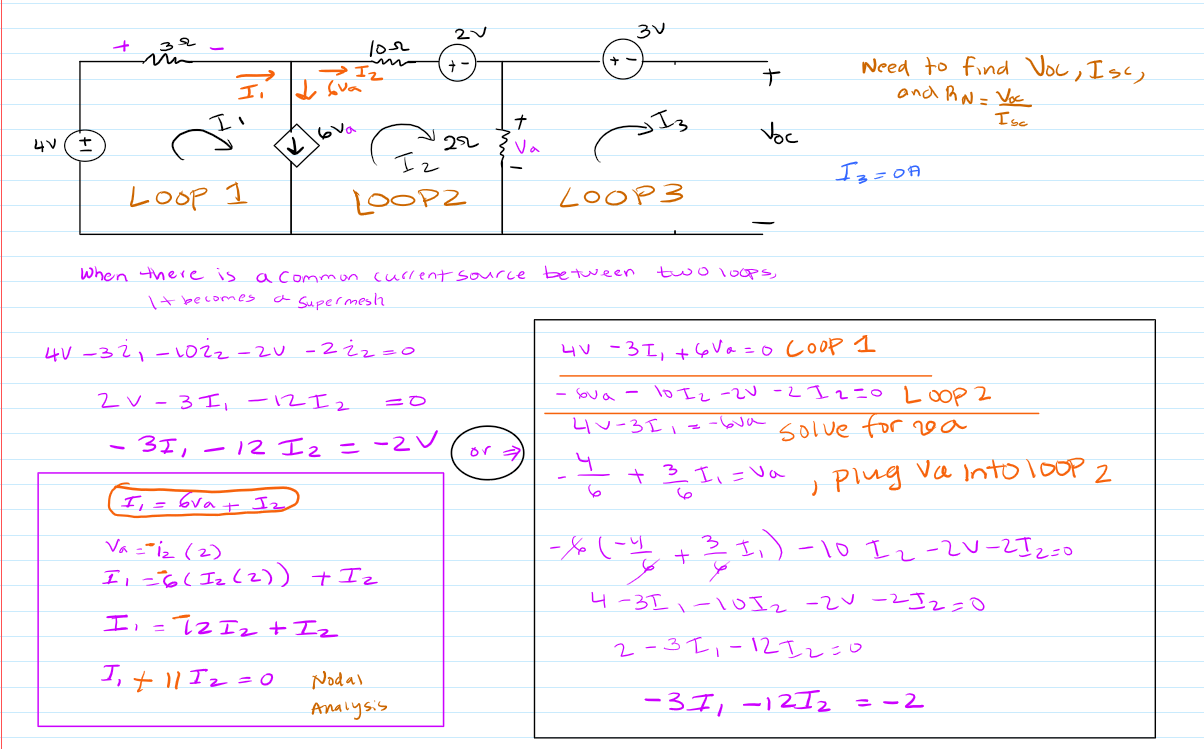 + 3Ω -
10Ω
2V
+ -
3V
+ -
I₁
I₂
6Va
4V
±
I₁
6Va
I₂
2Ω
+
Va
-
I₃
+
Voc
-
LOOP 1
LOOP2
LOOP3
Need to find Voc, Isc,
and RN = Voc
Isc
I₃ = 0A
When there is a common current source between two loops,
It becomes a supermesh
4V - 3i₁ - 10i₂ - 2V - 2i₂ = 0
2V - 3I₁ - 12I₂ = 0
- 3I₁ - 12 I₂ = -2V
or ⇒
I₁ = 6Va + I₂
Va = -i₂ (2)
I₁ = -6(I₂(2)) + I₂
I₁ = -12I₂ + I₂
I₁ + 11I₂ = 0
Nodal
Analysis
4V - 3I₁ + 6Va = 0 LOOP 1
- 6Va - 10I₂ - 2V - 2I₂ = 0 LOOP 2
4V - 3I₁ = -6Va solve for va
- 4/6 + 3/6 I₁ = Va , plug Va into loop 2
-6 (-4/6 + 3/6 I₁) - 10 I₂ - 2V - 2I₂ = 0
4 - 3I₁ - 10I₂ - 2V - 2I₂ = 0
2 - 3I₁ - 12I₂ = 0
-3I₁ - 12I₂ = -2